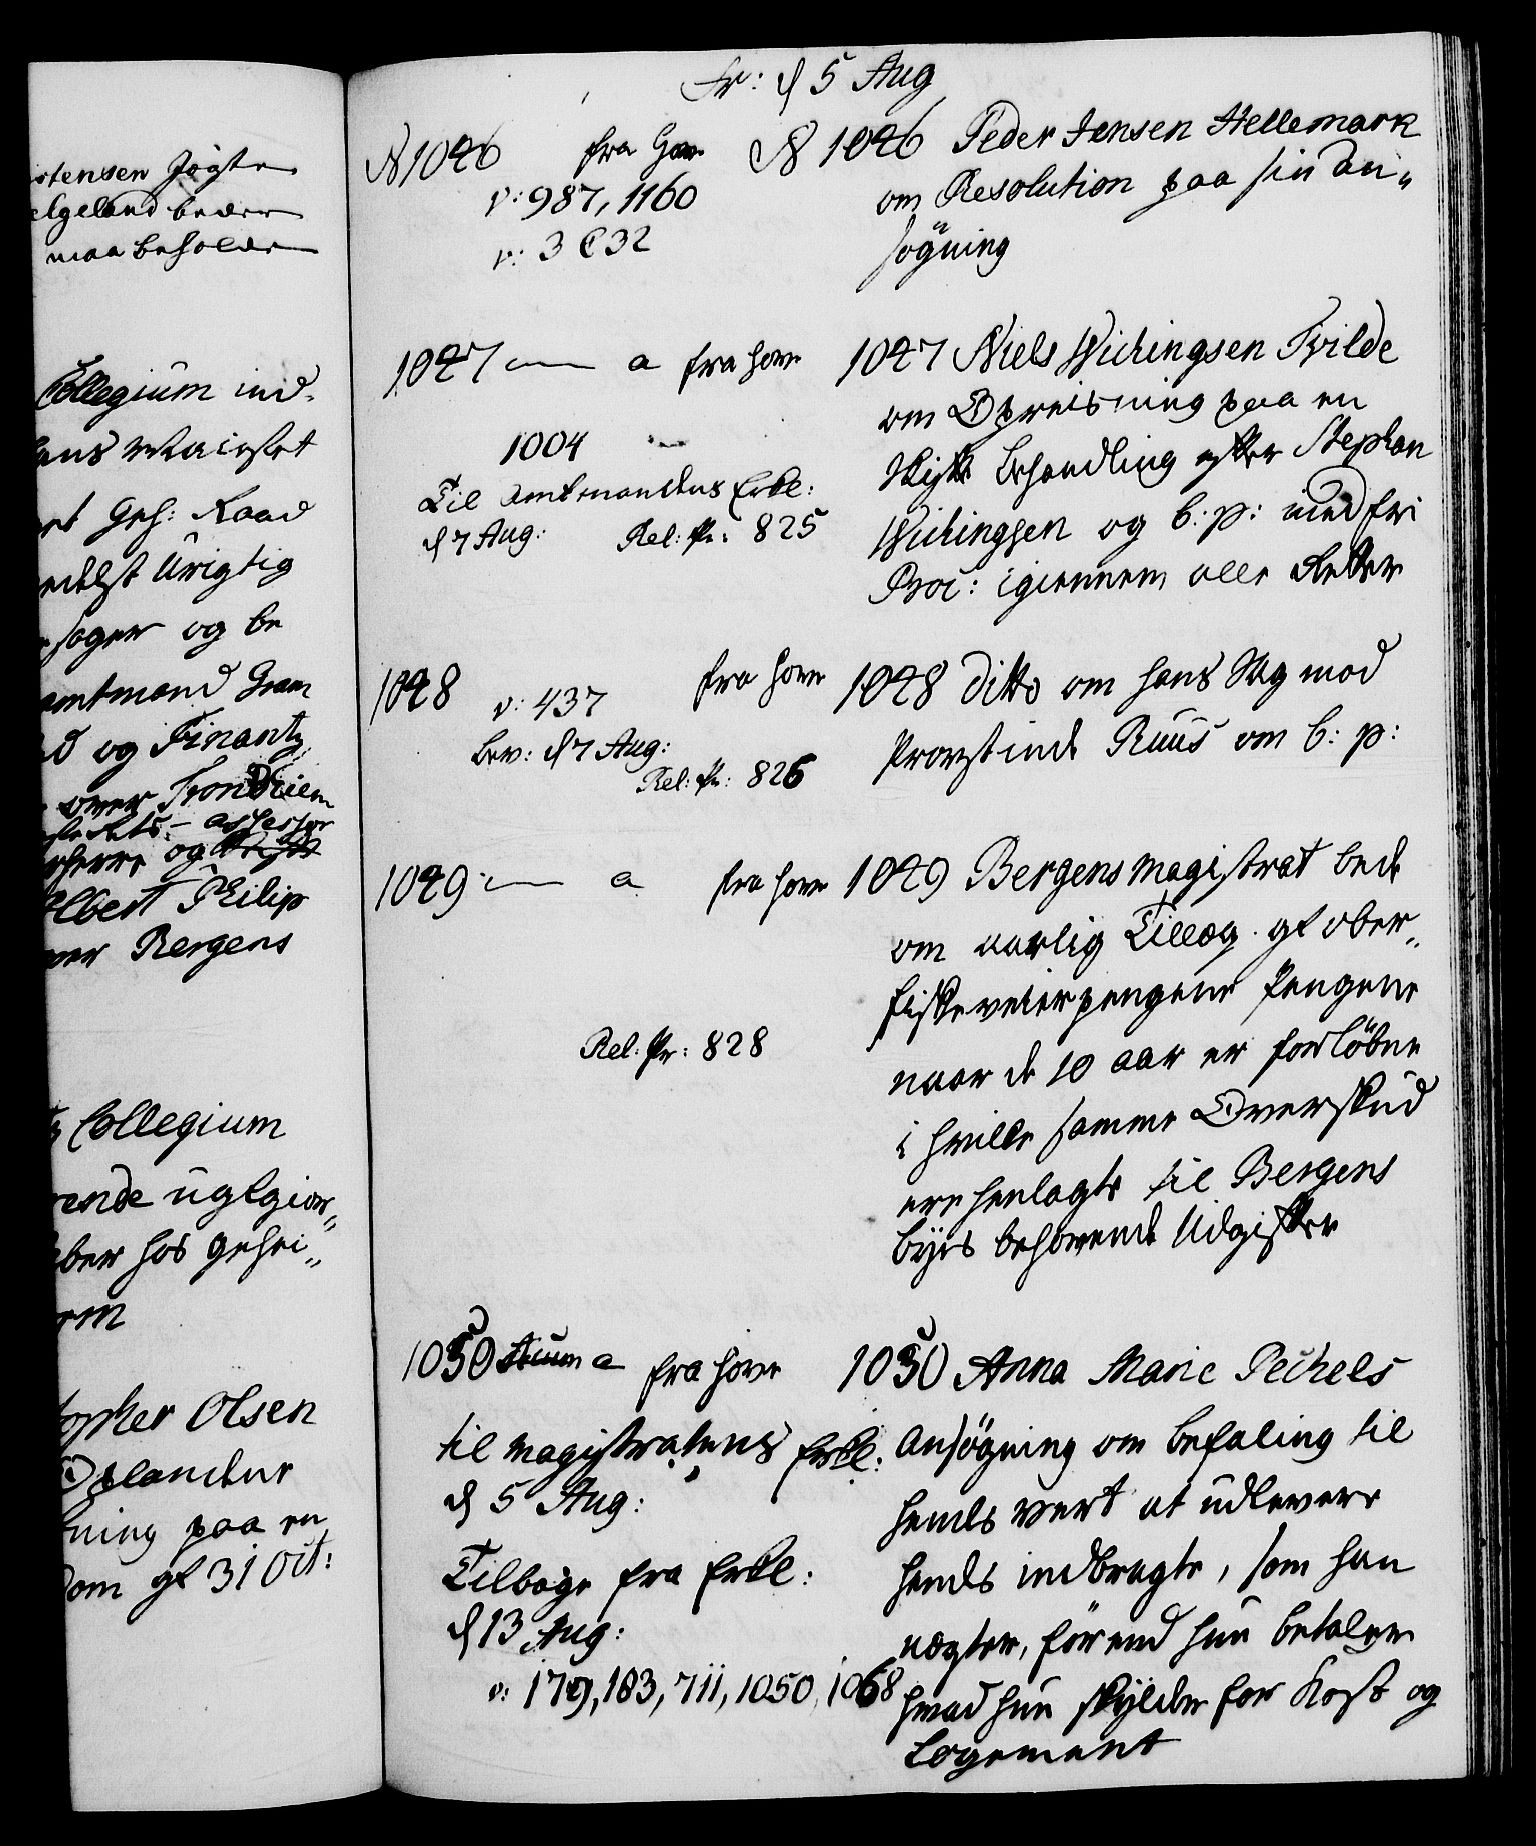 Fr: d 5 Aug
stensen Jøgte
elgeland beder
maa beholde
Collegium ind-
hans
et Geh: Raad
urigtig
sager og be
amtmand Gram
d og Finantz
over Trondhiem
assessor
herre og
Albert Philip
over Bergens
Collegium
rende
ber hos Gehei„
em
topher Olsen
Oplandene
ning paa en
dom af 31 Oct:
N 1046 fra Hove
v: 987, 1160
v: 3 C 32
N 1046 Peder Jensen Hellemark
om Resolution paa sin An„
søgning
1047 — a fra hove
1004
Til Amtmandens Erkl:
d 7 Aug: Rel: Pr: 825
1047 Niels Wichingsen Tvilde
om Opreisning paa en
Skifte Behandling efter Stephan
Wichingsen og b: p: med fri
Proc: igiennem alle Retter
1048 v: 437 fra hove
Bev: d 7 Aug:
Rel: Pr: 826
1048 ditto om hans Sag mod
Provstinde Ruus om b: p:
1049 — a fra hove
Rel: Pr: 828
1049 Bergens Magistrat bede
om aarlig Tillæg af over„
fiskeveierpengene Pengene
naar de 10 aar er forløbne
i hvilke samme Overskud
ere henlagte til Bergens
byes behøvende Udgifter
1050 a fra hove
til Magistratens Erkl:
d 5 Aug:
Tilbage fra Erkl:
d 13 Aug:
v: 179, 183, 711, 1050, 1068
1050 Anna Marie Pechels
Ansøgning om befaling til
hendes Vert at udlevere
hendes indbragte, som han
nægter, førend hun betaler
hvad hun skylder for Kost og
Logement